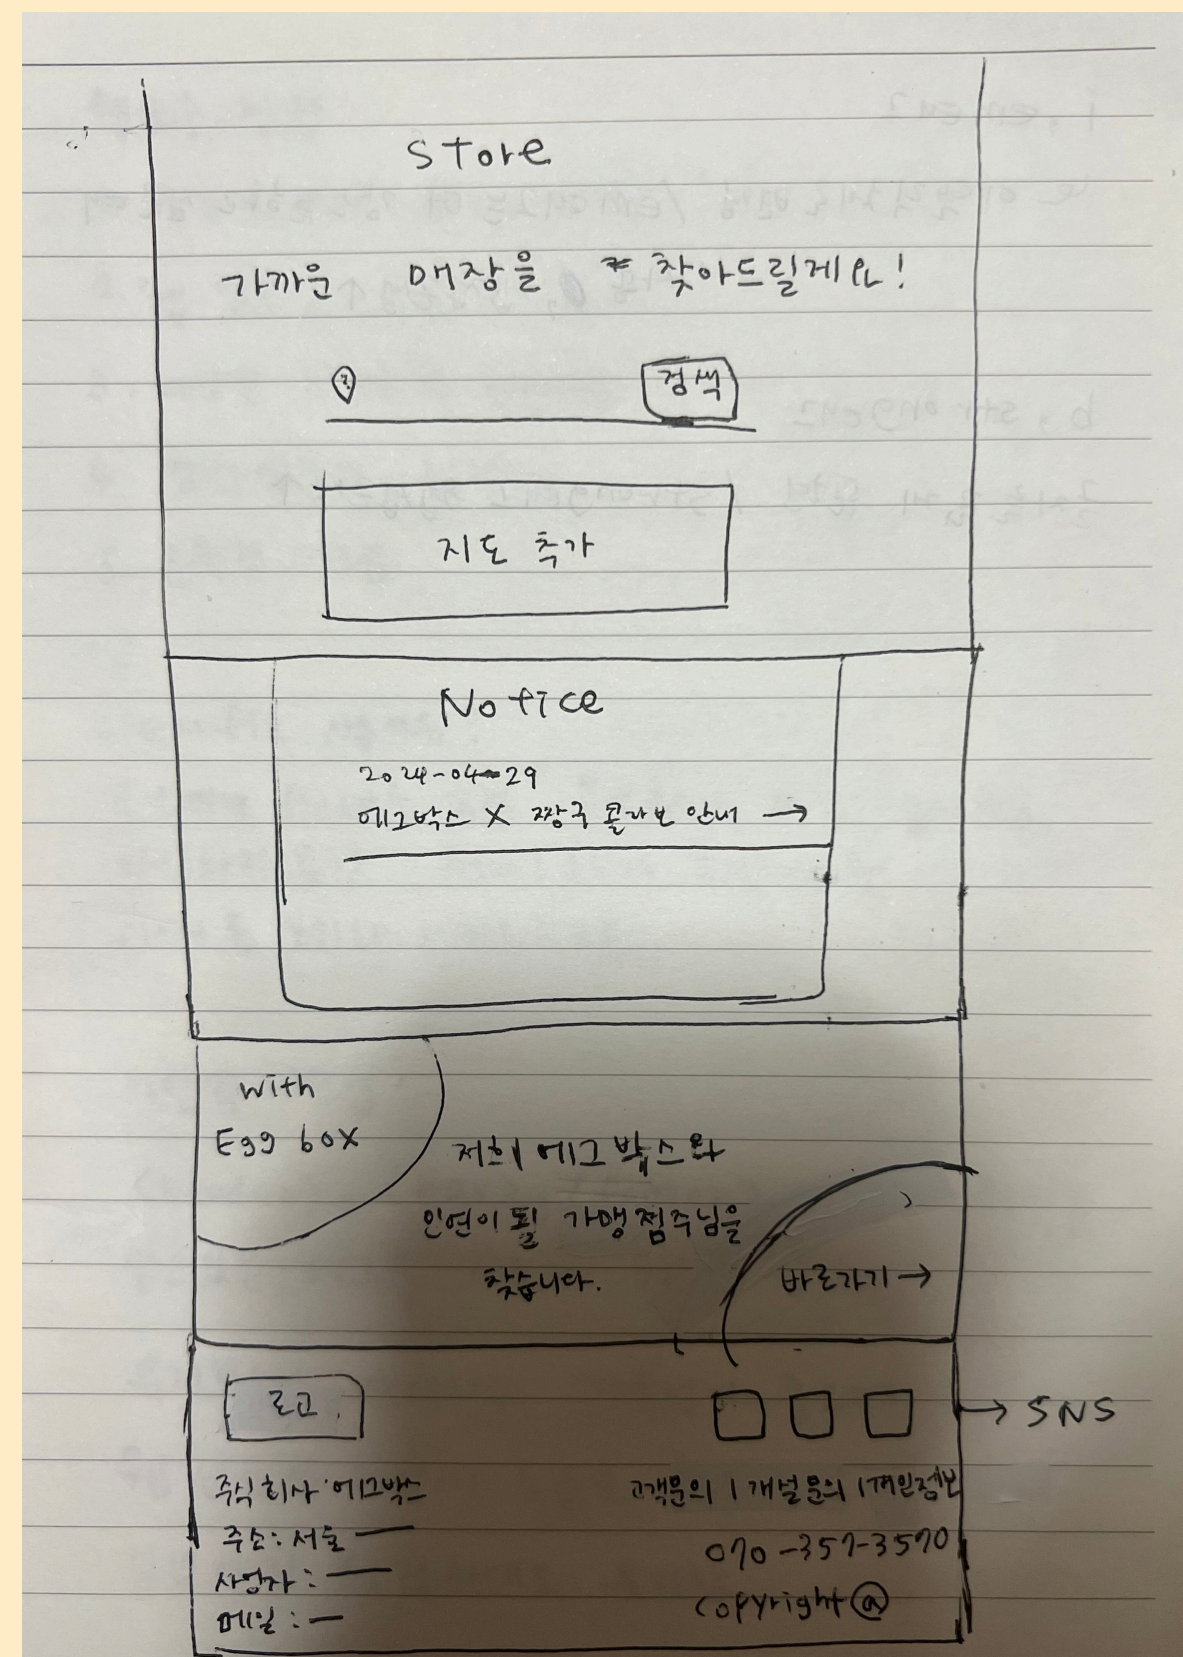 Store
가까운 매장을 찾아드릴게요!
검색
지도 추가
Notice
2024-04-29
에그박스 X 짱구 콜라보 안내 →
with
Egg box
저희 에그박스와
인연이 될 가맹점주님을
찾습니다.
바로가기 →
로고
→ SNS
주식회사 에그박스
고객문의 | 개설문의 | 개인정보
주소: 서울
070-357-3570
사업자:
메일:
copyright @